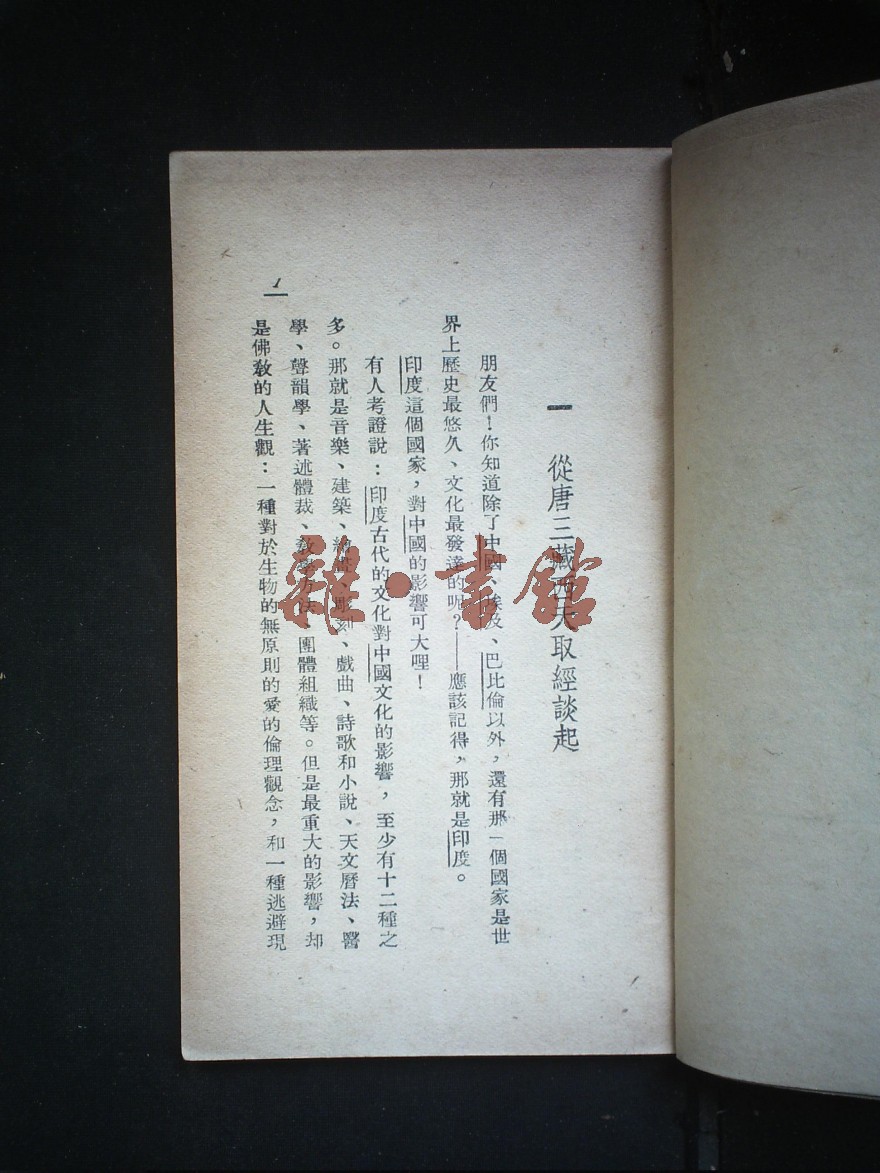 一 從唐三藏西天取經談起
朋友們！你知道除了中國、埃及、巴比倫以外，還有那一個國家是世
界上歷史最悠久、文化最發達的呢？——應該記得，那就是印度。
印度這個國家，對中國的影響可大哩！
有人考證說：印度古代的文化對中國文化的影響，至少有十二種之
多。那就是音樂、建築、繪畫、彫刻、戲曲、詩歌和小說、天文曆法、醫
學、聲韻學、著述體裁、教學方法、團體組織等。但是最重大的影響，却
是佛敎的人生觀：一種對於生物的無原則的愛的倫理觀念，和一種逃避現
1
雜·書館